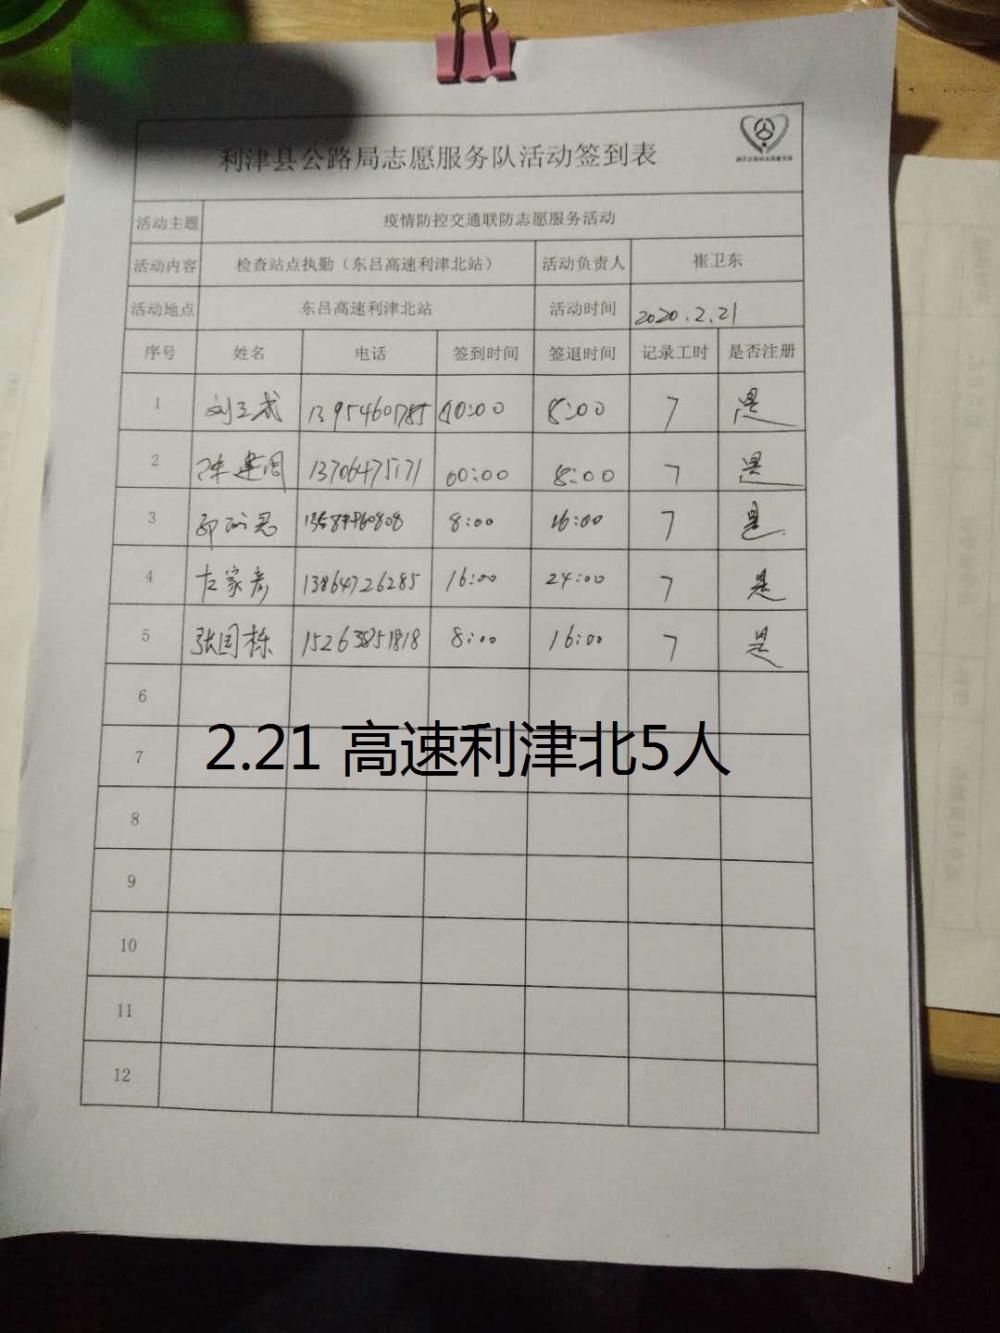 利津县公路局志愿服务队活动签到表
活动主题 疫情防控交通联防志愿服务活动
活动内容 检查站点执勤（东吕高速利津北站） 活动负责人 崔卫东
活动地点 东吕高速利津北站 活动时间 2020.2.21
序号 姓名 电话 签到时间 签退时间 记录工时 是否注册
1 刘 13954601785 00:00 8:00 7 是
2 陈建国 13706475171 00:00 8:00 7 是
3 8:00 16:00 7 是
4 左家彦 13864726285 16:00 24:00 7 是
5 张国栋 15263851818 8:00 16:00 7 是
6
2.21 高速利津北5人
7
8
9
10
11
12